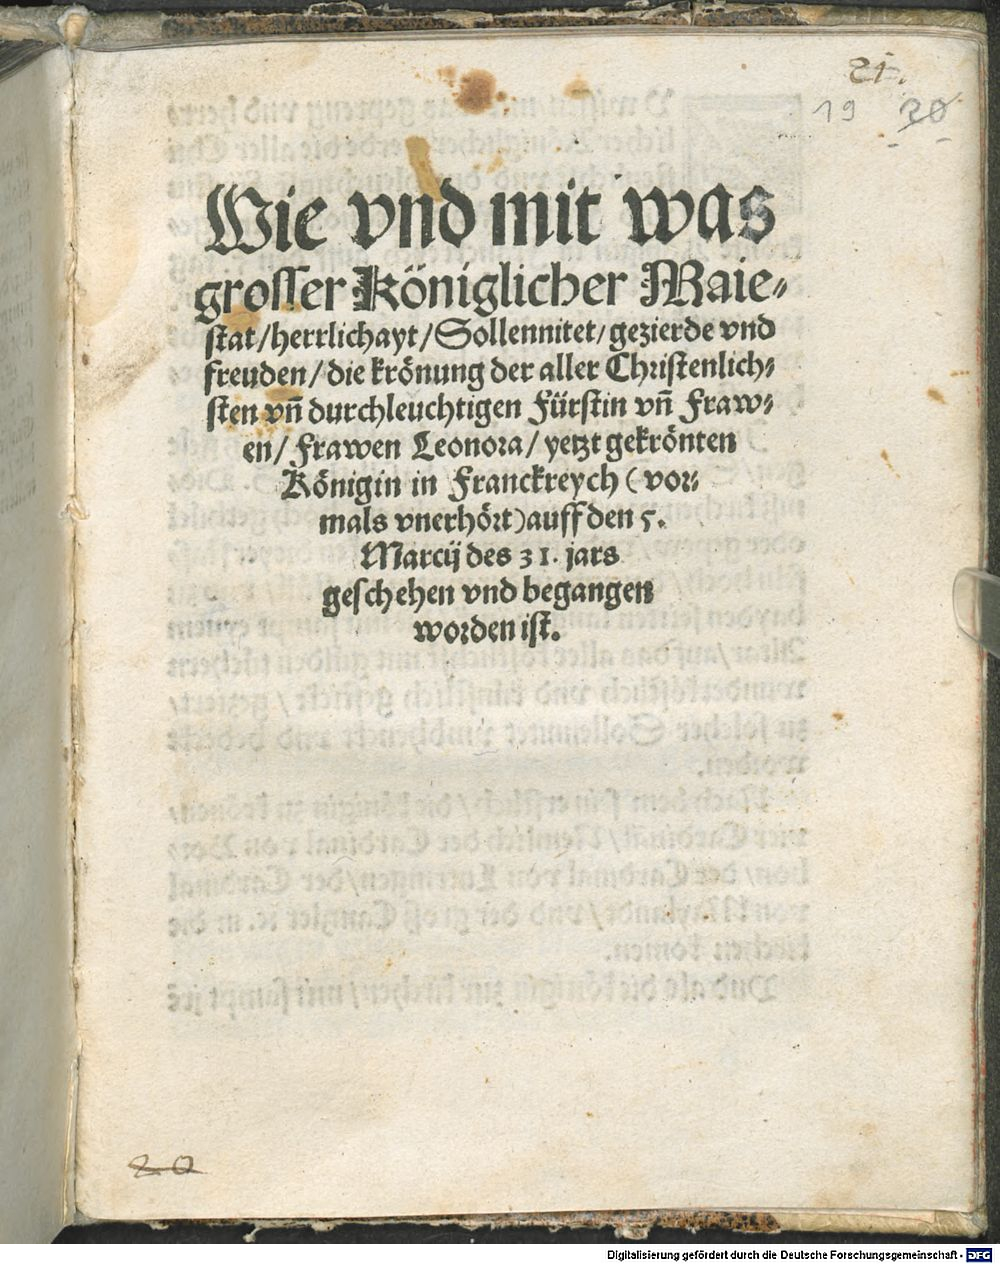 21.
19 20
Wie vnd mit was
grosser Königlicher Maie⸗
stat/herrlichayt/Sollennitet/gezierde vnd
freuden/die krönung der aller Christenlich⸗
sten vñ durchleuchtigen Fürstin vñ Fraw⸗
en/Frawen Leonora/yetzt gekrönten
Königin in Franckreych (vor⸗
mals vnerhört) auff den 5.
Marcij des 31. jars
geschehen vnd begangen
worden ist.
20
Digitalisierung gefördert durch die Deutsche Forschungsgemeinschaft - DFG